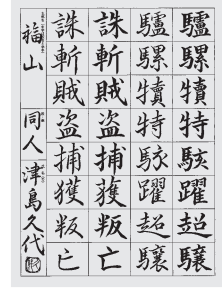 驢騾犢特駭躍超驤
驢騾犢特駭躍超驤
誅斬賊盗捕獲叛亡
誅斬賊盗捕獲叛亡
福山 同人 津島久代